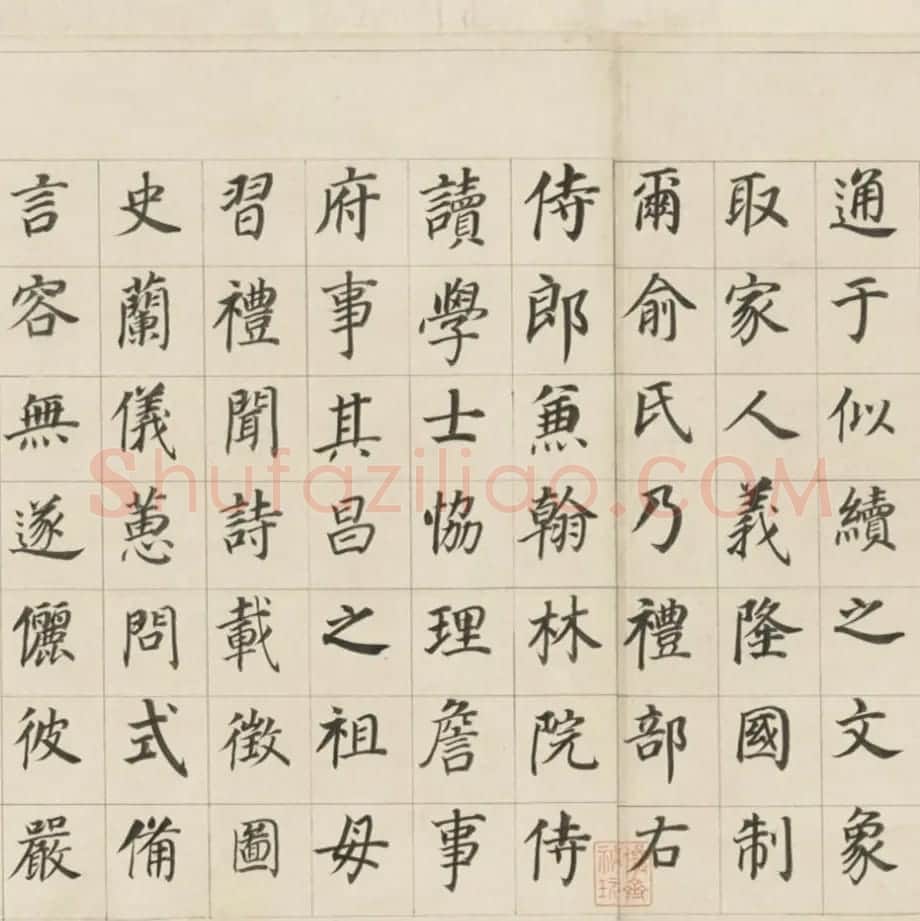 通于似續之文象
取家人義隆國制
爾俞氏乃禮部右
侍郎兼翰林院侍
讀學士協理詹事
府事其昌之祖母
習禮聞詩載徵圖
史蘭儀蕙問式備
言容無遂儷彼嚴
Shufaziliao.COM